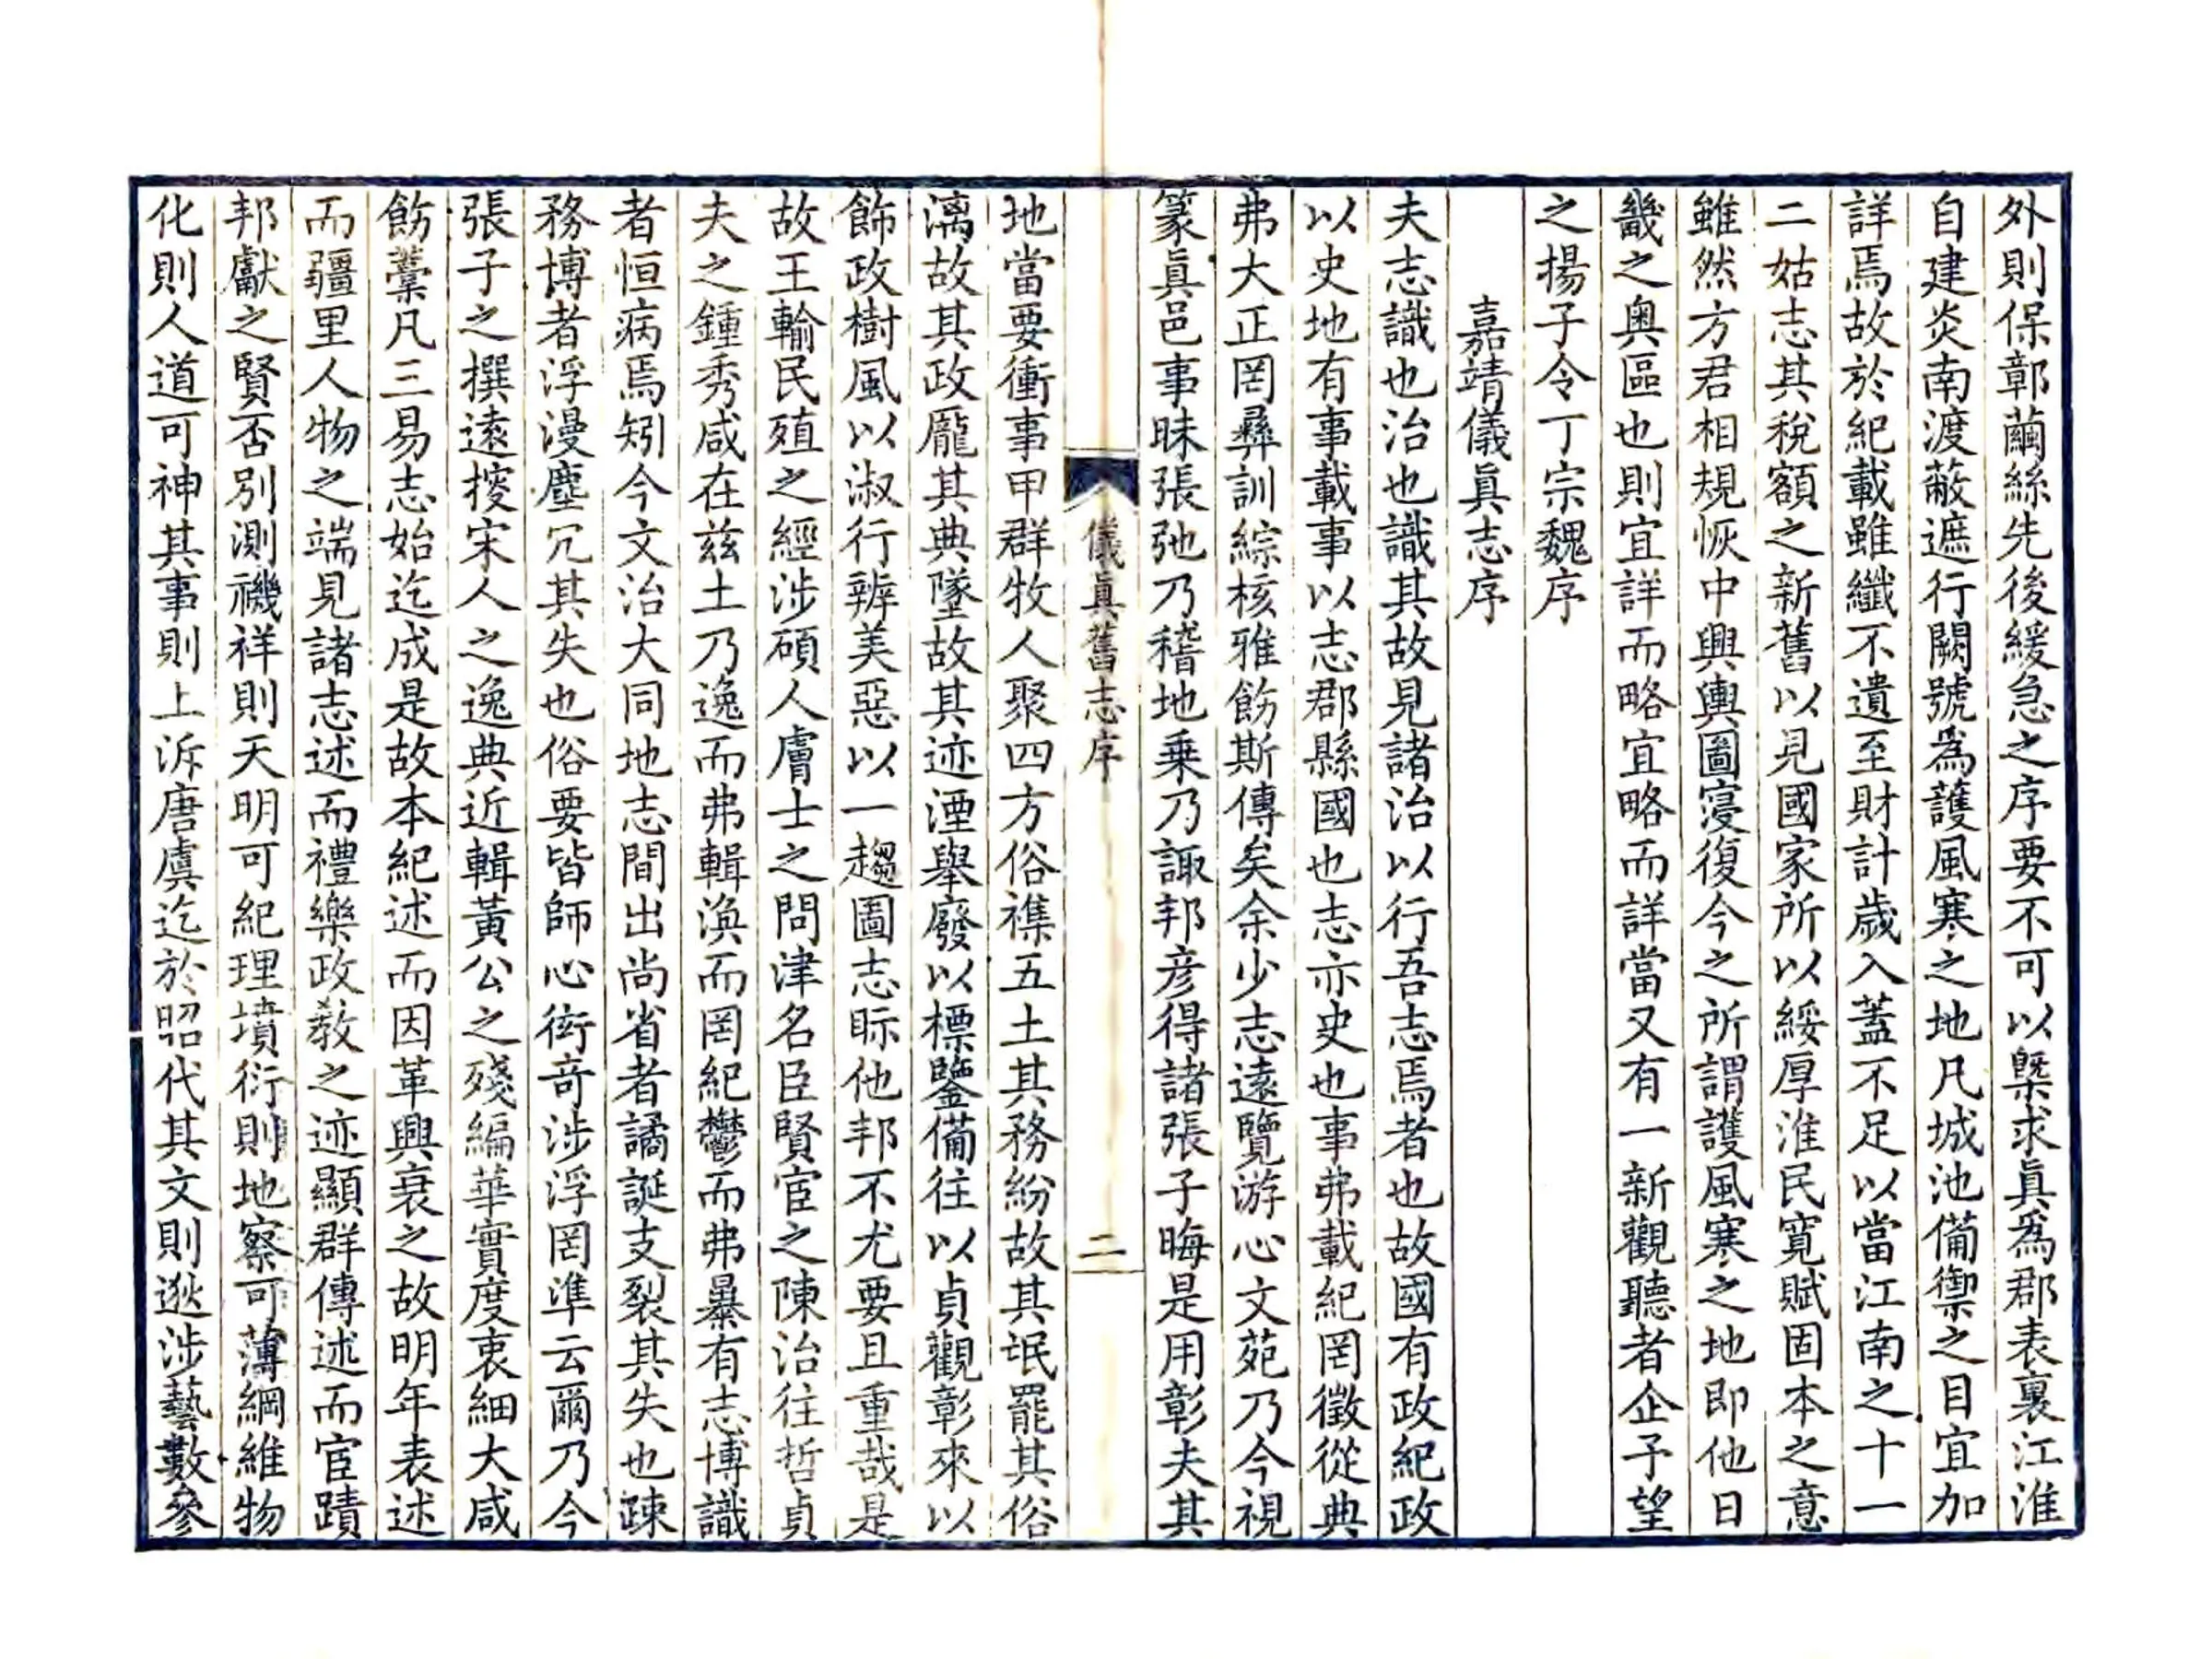 外則保鄣繭絲先後緩急之序要不可以槩求眞爲郡表裏江淮
自建炎南渡蔽遮行闕號爲護風寒之地凡城池備禦之目宜加
詳焉故於紀載雖纖不遺至財計歲入蓋不足以當江南之十一
二姑志其稅額之新舊以見國家所以綏厚淮民寬賦固本之意
雖然方君相規恢中興輿圖寖復今之所謂護風寒之地即他日
畿之奧區也則宜詳而略宜略而詳當又有一新觀聽者企予望
之揚子令丁宗魏序
嘉靖儀眞志序
夫志識也治也識其故見諸治以行吾志焉者也故國有政紀政
以史地有事載事以志郡縣國也志亦史也事弗載紀罔徵從典
弗大正罔彝訓綜核雅飭斯傳矣余少志遠覽游心文苑乃今視
篆眞邑事昧張弛乃稽地乗乃諏邦彦得諸張子晦是用彰夫其
儀眞舊志序
二
地當要衝事甲群牧人聚四方俗襍五土其務紛故其氓罷其俗
漓故其政厖其典墜故其迹湮舉廢以標鑒備往以貞觀彰來以
飾政樹風以淑行辨美惡以一趨圖志眎他邦不尤要且重哉是
故王輸民殖之經涉碩人膚士之問津名臣賢宦之陳治往哲貞
夫之鍾秀咸在兹土乃逸而弗輯渙而罔紀鬱而弗㬥有志博識
者恒病焉矧今文治大同地志間出尚省者譎誕支裂其失也疎
務博者浮漫塵冗其失也俗要皆師心衒奇涉浮罔準云爾乃今
張子之撰遠搜宋人之逸典近輯黃公之殘編華實度衷細大咸
飭藁凡三易志始迄成是故本紀述而因革興衰之故明年表述
而疆里人物之端見諸志述而禮樂政敎之迹顯群傳述而宦蹟
邦獻之賢否別測禨祥則天明可紀理墳衍則地察可薄綱維物
化則人道可神其事則上泝唐虞迄於昭代其文則逖涉藝數參